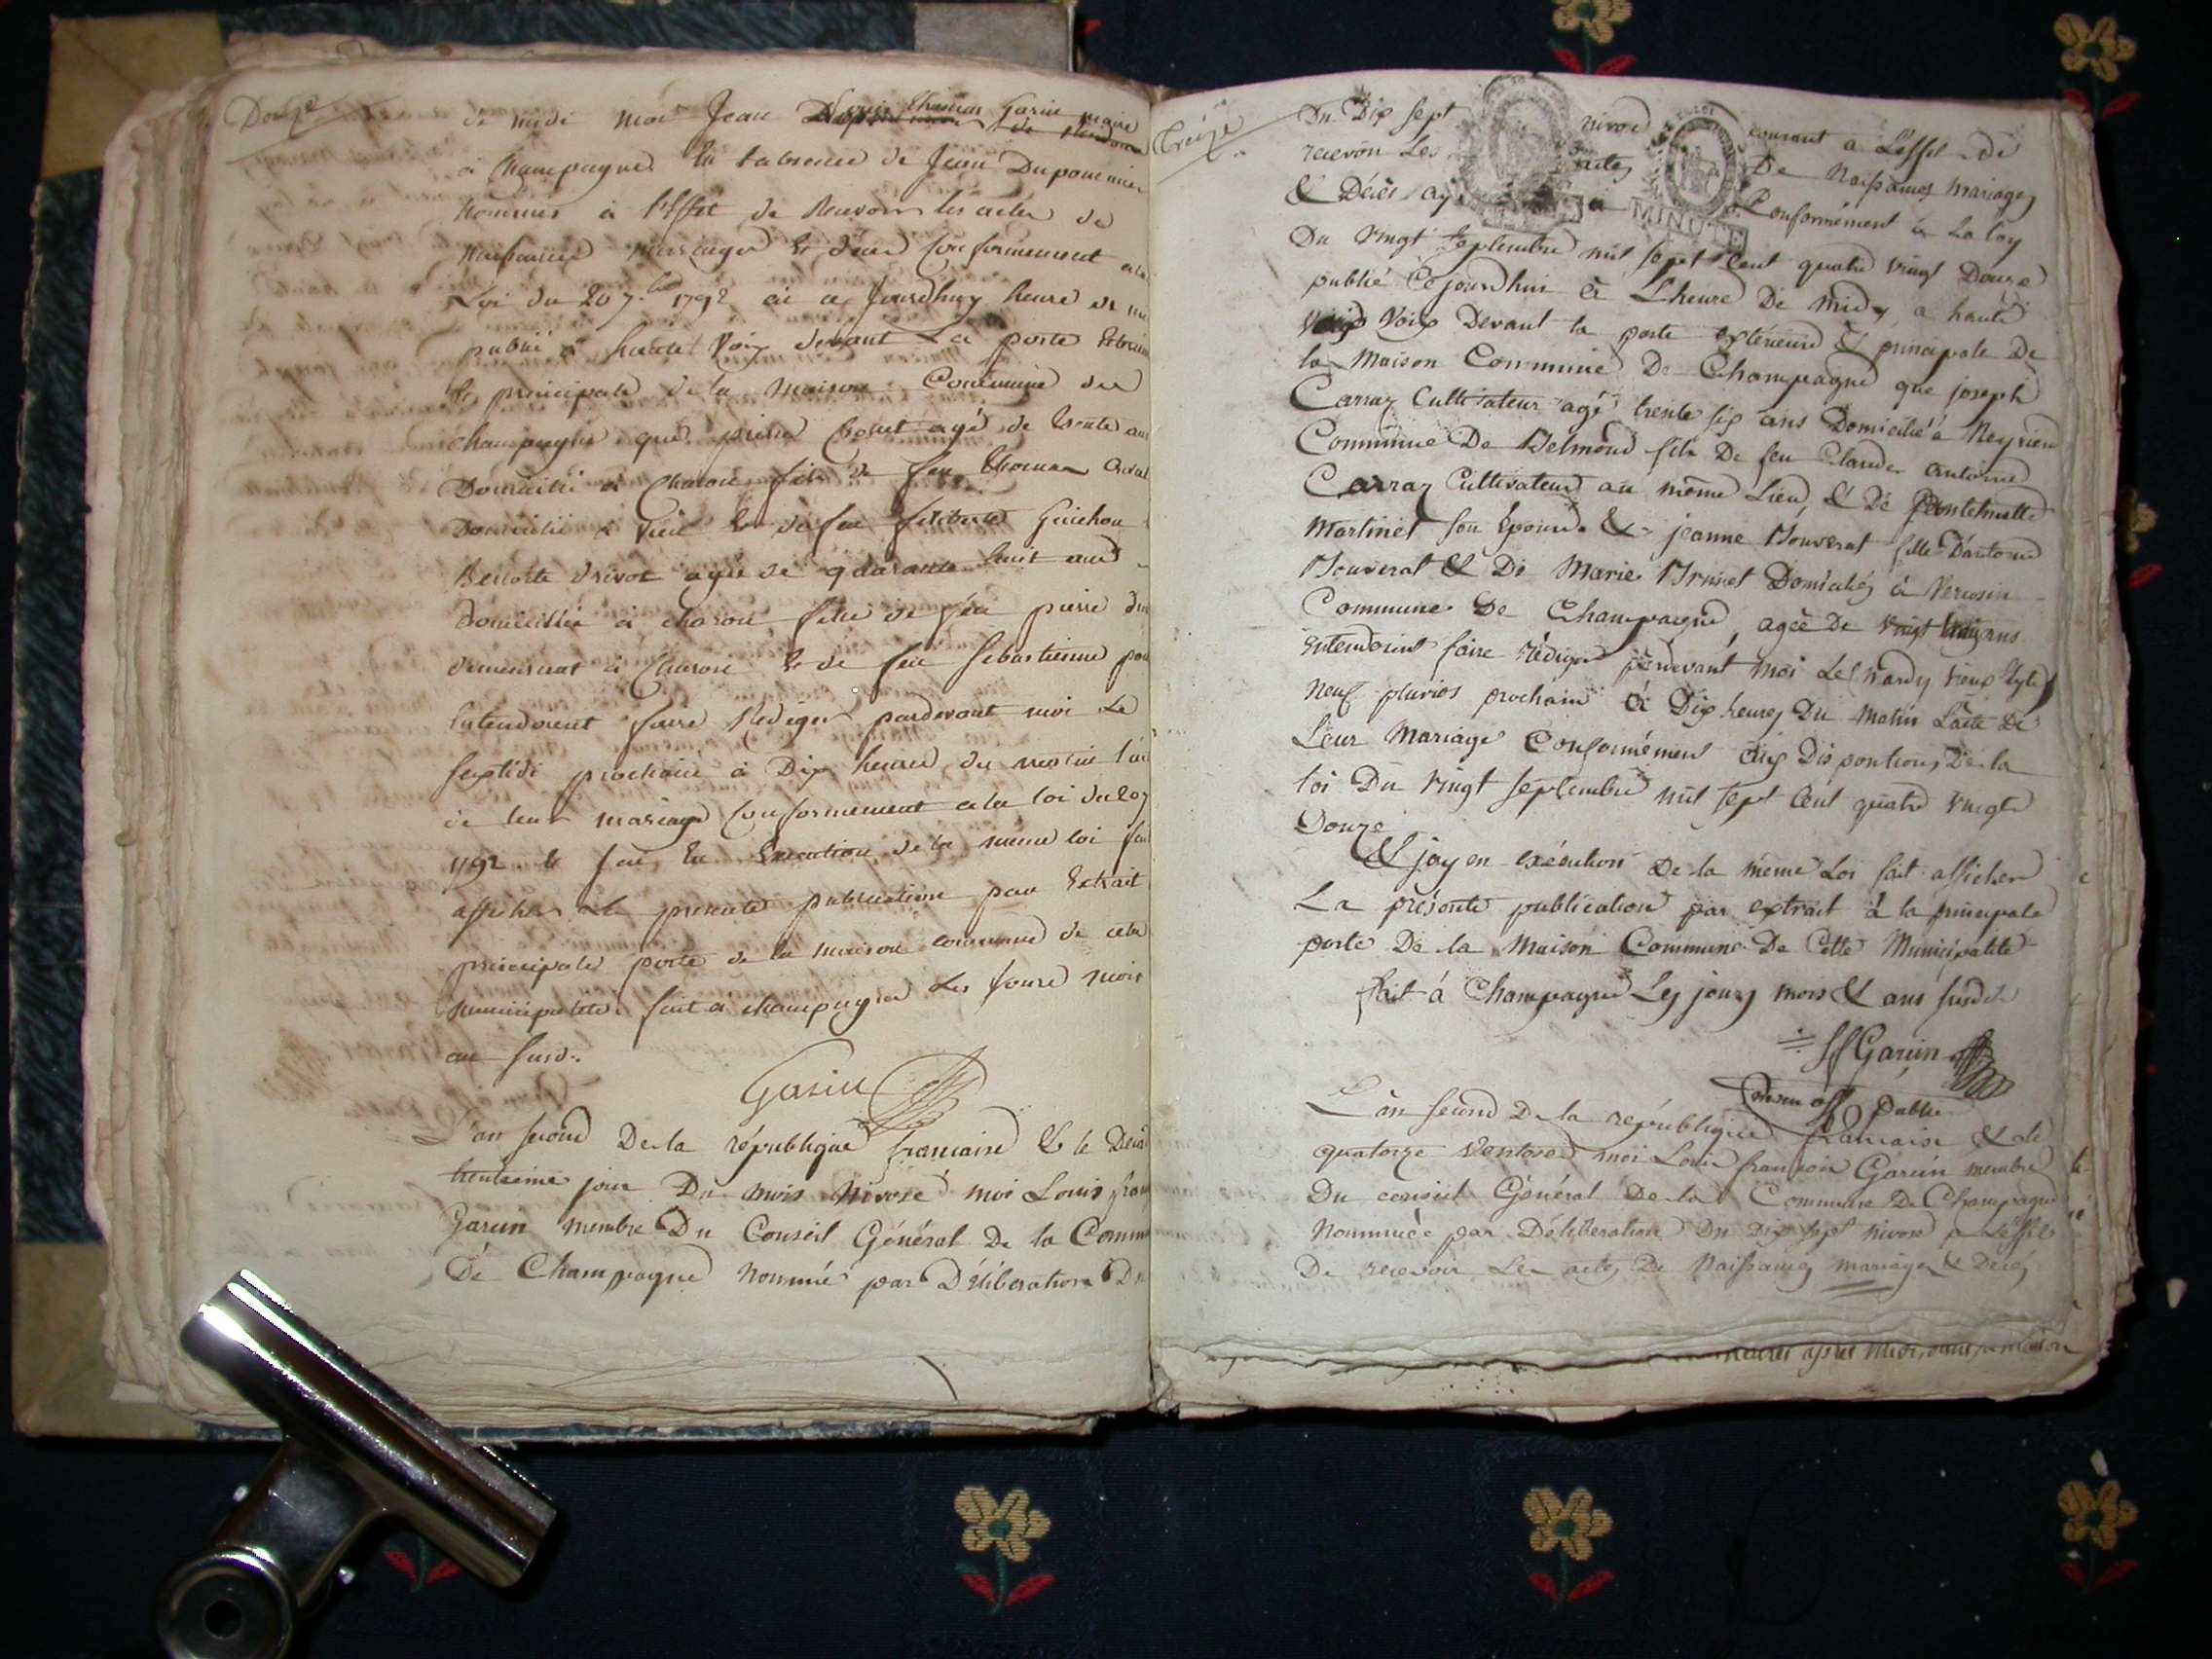 Douze
de midi moi Jean Louis Thomas Garin maire
à Champagne En Labsence de Jean Dupommier
nommé à l'effet de Recevoir les actes de
Naissance mariages & décès Conformement a la
Loi du 20 7.bre 1792 ai ce Jourdhuy heure de mi
publié à haute Voix devant La porte Exterieure
& principale de la maison Commune de
champagne que pierre agé de trente ans
Domicilié à Charon fils de feu Thomas
Domicilié à Vieu & de feu filiberte Guichon
Benoite Drivot agée de quarante huit ans
domicillié à charon fille de feu pierre
demeurant à Charon & de feu Sebastienne
Entendoient faire Rédiger pardevant moi Le
septidi prochain à Dix heures du matin l'ac
de leur mariage Conformement a la loi du 20 7
1792 & j'ai En Execution de la meme loi fai
afficher La presente publication par Extrait
principale porte de la maison commune de cette
municipalité fait a champagne Les jours mois
an susd.
Garin
L'an second De la république francaise & le Dix
huitieme jour Du mois Nivose moi Louis fran
Garin membre Du Conseil Général De la Comm
De Champagne Nommé par Déliberation Du
Treize
Du Dix sept nivose courant a Leffet de
recevoir Les actes De Naissances mariages
& Décès ay MINUTE Conformément à La loy
Du Vingt septembre mil sept Cent quatre vingt Douze
publié Cejourdhui à Lheure De midy a haute
Voix Devant la porte extérieure & principale De
la Maison Commune De Champagne que joseph
Carraz Cultivateur agé trente six ans Domicilié à Neyrieu
Commune De Belmond fils De feu Claude antoine
Carraz Cultivateur au même Lieu, & De
Martinet son Epouse & jeanne Bouverat fille D'antoine
Bouverat & De Marie Brunet Domiciliés à Vercosin
Commune De Champagne, agée De vingt trois ans
entendoient faire rédiger pardevant moi Le mardy vieux style
neuf pluvios prochain à Dix heures Du Matin L'acte De
Leur Mariage Conformément aux Dispositions De la
loi Du vingt septembre mil sept Cent quatre vingt
Douze
& jay en exécution De la même Loi fait afficher
La présente publication par extrait à la principale
porte De la Maison Commune De Cette Municipalité
fait à Champagne Les jours mois & ans susdits
Garin
off public
L'an second De la république francaise & le
quatorze Ventose moi Louis francois Garin membre
Du conseil Général De la Commune De Champagne
Nommée par Déliberation Du Dix sept nivose a Leffet
De recevoir Les actes De Naissances mariages & Décès
heures après midi, dans sa maison